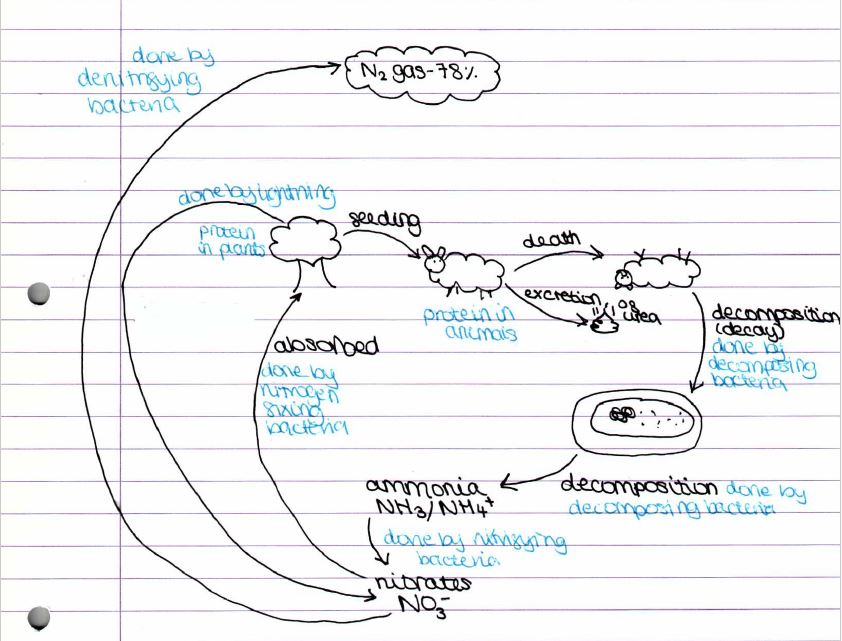 done by
denitrifying
bacteria
N₂ gas-78%
done by lightning
protein
in plants
feeding
death
excretion
of
urea
protein in
animals
decomposition
(decay)
done by
decomposing
bacteria
absorbed
done by
nitrogen
fixing
bacteria
ammonia
NH3/NH4⁺
decomposition done by
decomposing bacteria
done by nitrifying
bacteria
nitrates
NO₃⁻